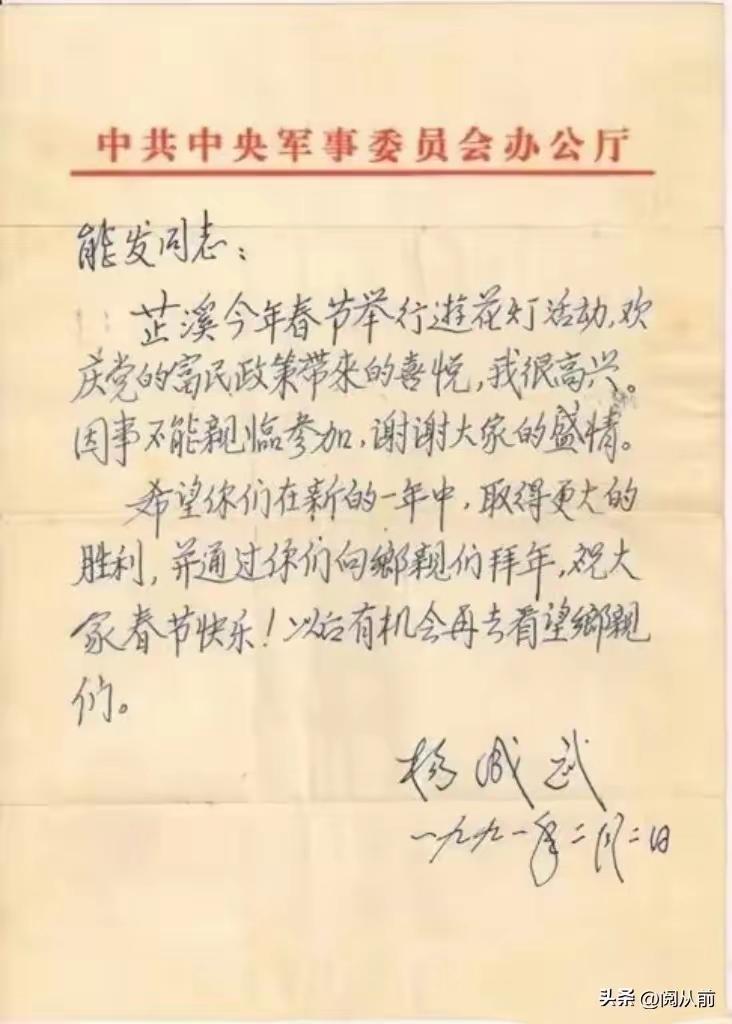 中共中央军事委员会办公厅
能发同志：
芷溪今年春节举行遊花灯活动，欢
庆党的富民政策带来的喜悦，我很高兴。
因事不能親临参加，谢谢大家的盛情。
希望你们在新的一年中，取得更大的
胜利，并通过你们向鄉親们拜年，祝大
家春节快乐！以后有机会再去看望鄉親
们。
杨成武
一九九一年二月二日
头条 @阅从前